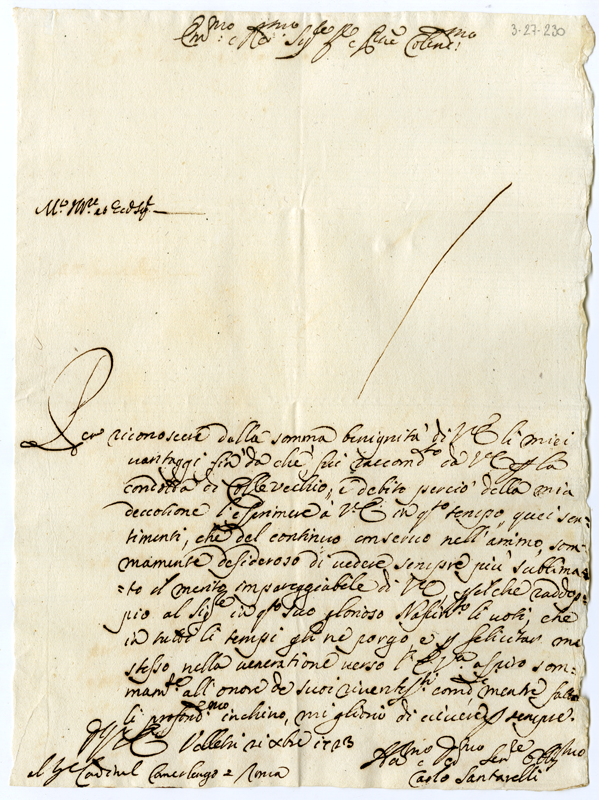 Em.mo e Re.mo Sig.re P.re e P.ne Colen.mo
3-27-230
Per riconoscere dalla somma benignità di V.E. li miei
vantaggi fin da che fui raccom.to da V.E. p la
condotta di Collevecchio, è debito perciò della mia
devotione l'esprimere à V.E. in q.to tempo quei sen-
timenti, che del continuo conservo nell'animo, som-
mamente desideroso di vedere sempre più sublima=
=to il merito impareggiabile di V.E., p il che raddop-
pio al Sig.re in q.to suo glorioso Nascim.to li voti, che
in tutti li tempi gli ne porgo e p felicitar me
stesso nella veneratione verso l'E. V.ra aspiro som-
mam.te all'onore de suoi riveriti.mi comd.i mentre
profond.mo inchino, mi glorio di vivere p sempre.
D V.E. Velletri 21 Xbre 1723
Hu.mo D.mo Ser.re Obl.mo
Carlo Santarelli
Camerlengo Roma